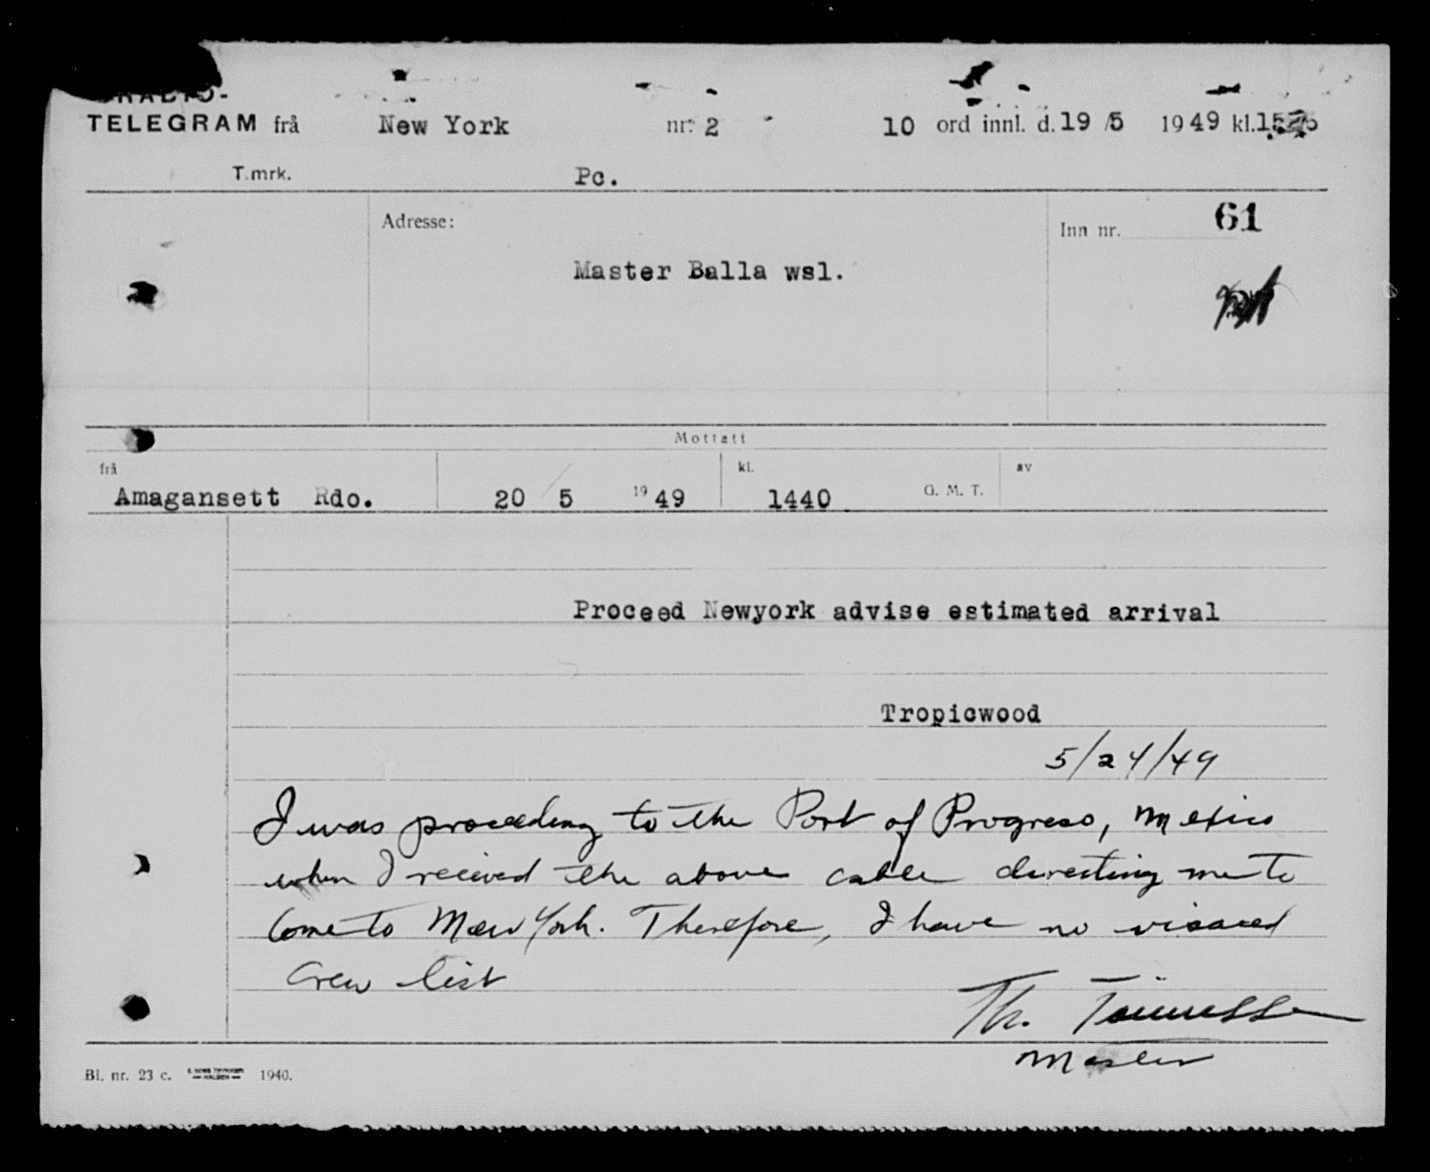 RADIO-
TELEGRAM frå New York nr. 2 10 ord innl. d. 19/5 1949 kl.
T.mrk. Pc.
Adresse: Inn nr. 61
Master Balla wsl.
Mottatt
frå kl. av
Amagansett Rdo. 20 5 1949 1440 G. M. T.
Proceed Newyork advise estimated arrival
Tropicwood
5/24/49
I was proceeding to the Port of Progreso, Mexico
when I recieved the above cable directing me to
Come to New York. Therefore, I have no visaed
Crew list
Th.
Master
Bl. nr. 23 c. 1940.